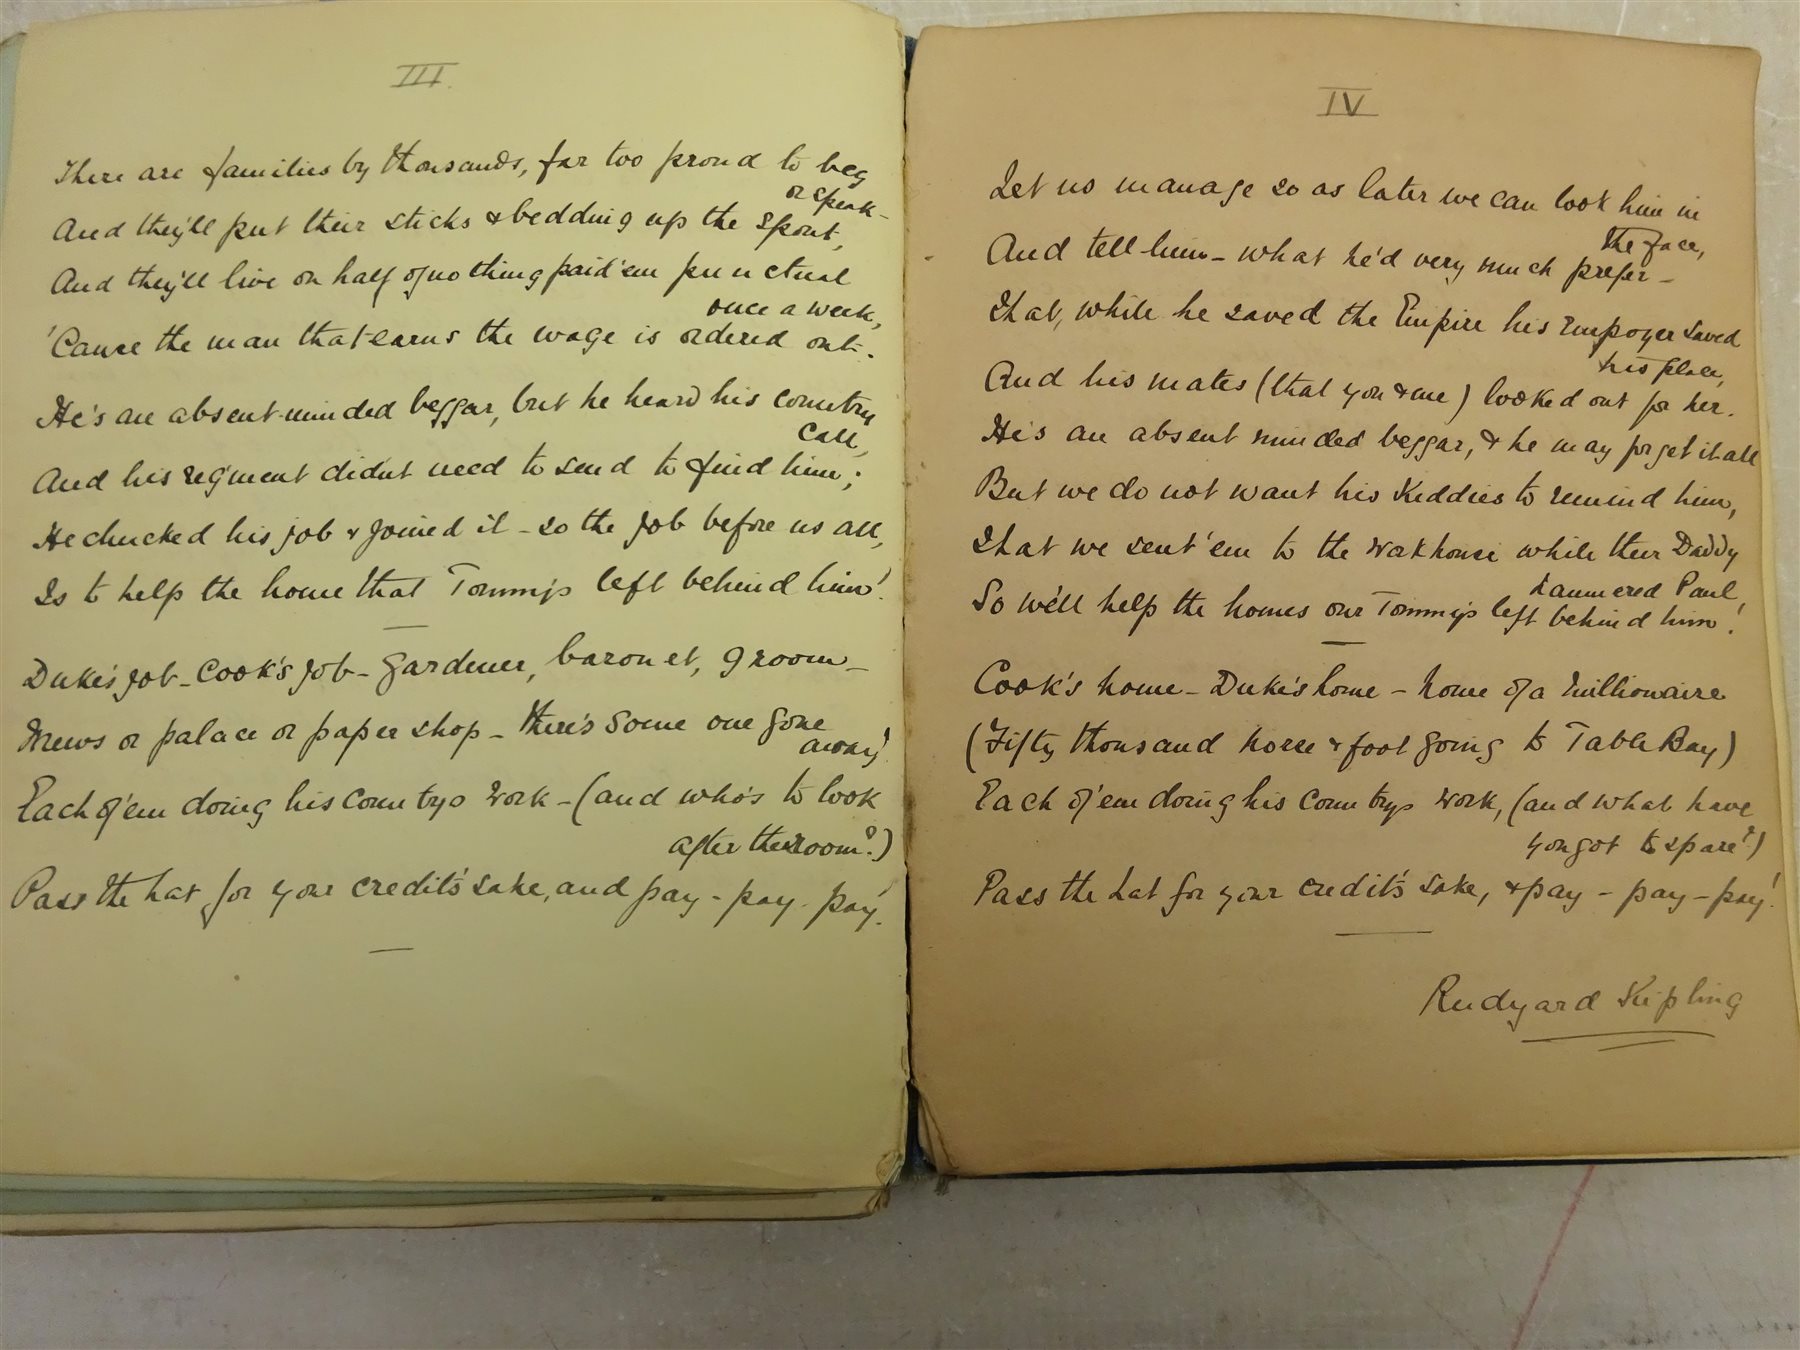 III.
There are families by thousands, far too proud to beg
or speak -
And they'll put their sticks & bedding up the spout,
And they'll live on half o' nothing paid 'em punctual
once a week,
'Cause the man that earns the wage is ordered out.
He's an absent-minded beggar, but he heard his country
call,
And his reg'ment didn't need to send to find him;
He chucked his job & joined it - so the job before us all,
Is to help the home that Tommy's left behind him!
Duke's job - Cook's job - Gardener, baronet, groom -
Mews or palace or paper shop - there's some one gone
away!
Each of 'em doing his country's work - (and who's to look
after the room?)
Pass the hat for your credit's sake, and pay - pay - pay!
IV
Let us manage so as later we can look him in
the face,
And tell him - what he'd very much prefer -
That, while he saved the Empire his Empoyer saved
his place,
And his mates (that you & me) looked out for her.
He's an absent minded beggar, & he may forget it all
But we do not want his Kiddies to remind him,
That we sent 'em to the workhouse while their Daddy
hammered Paul,
So we'll help the homes our Tommy's left behind him!
Cook's home - Duke's home - home of a millionaire
(Fifty thousand horse & foot going to Table Bay)
Each of 'em doing his country's work, (and what have
you got to spare?)
Pass the hat for your credit's sake, & pay - pay - pay!
Rudyard Kipling